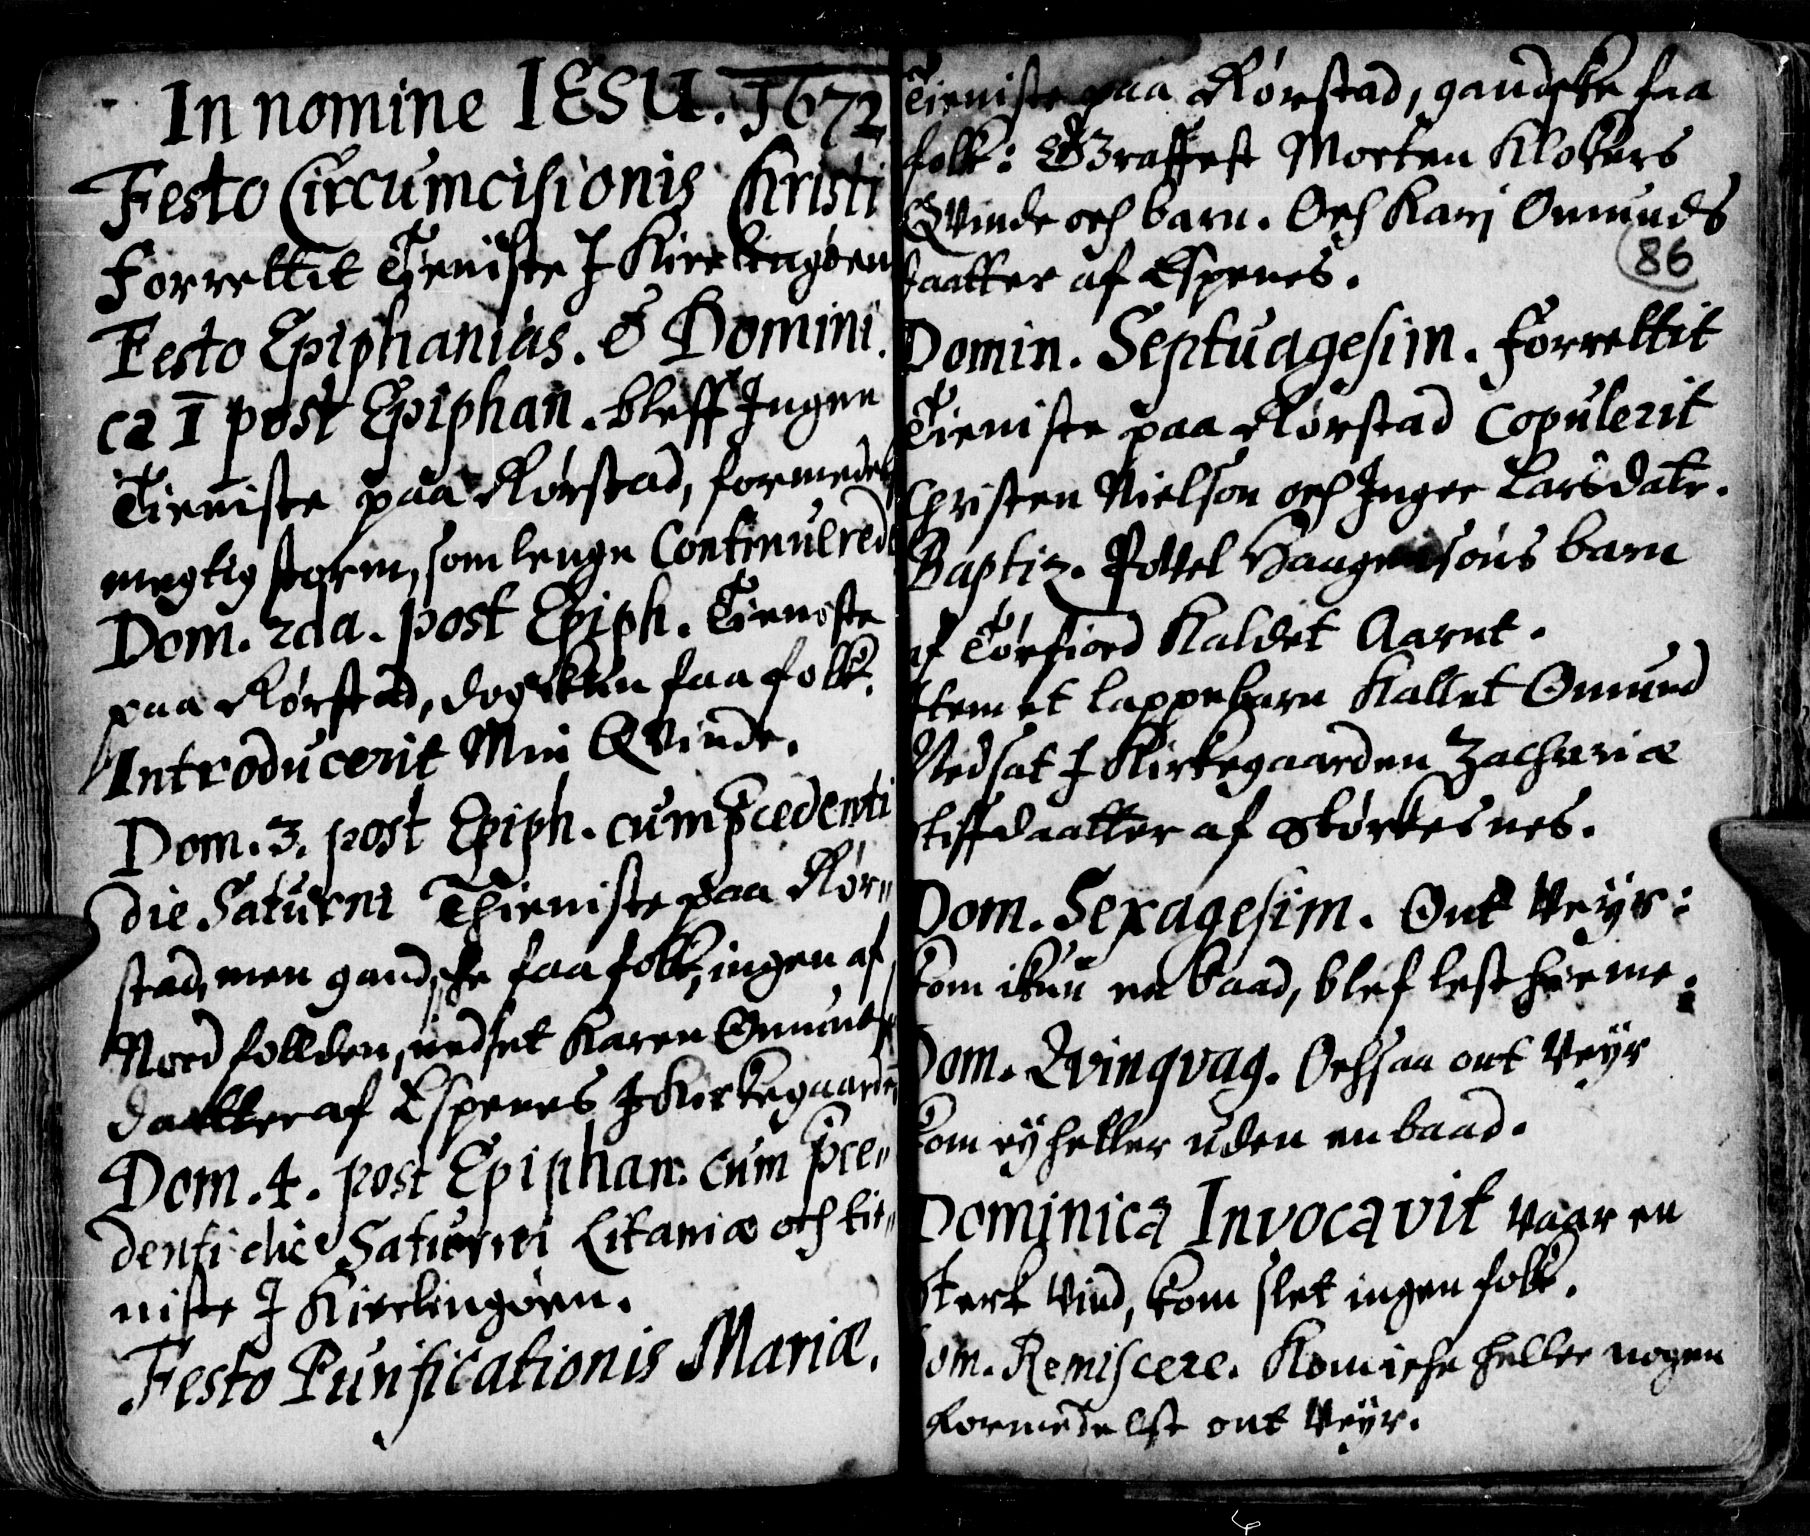 In nomine IESU. 1672
Festo Circumcisionis Christi
Forrettit Tieniste J Kierkingøen
Festo Epiphanias. & Domini.
ca I post Epiphan. bleff Jngen
Tieniste paa Rørstad, formedelst
megtig storm, som lenge Continuered
Dom. 2da. post Epiph. Tieniste
paa Rørstad, dog kun faa folk.
Introducerit Min Qvinde.
Dom. 3. post Epiph. cum p̄cedenti
die Saturni Thieniste paa Rør„
stad, men gandsche faa folk, ingen af
Nord follden, nedset Karen Omunds
daatter af Espenes J Kirkegaarden
Dom. 4. post Epiphan. cum p̄ce„
denti die Saturni Litaniæ och tie„
niste J Kierkingøen.
Festo Purificationis Mariæ.
Tieniste paa Rørstad, gandske faa
folk: Begraffest Morten Klokers
Qvinde och barn. Och Kari Omunds
daatter af Espenes.
86
Domin. Septuagesim. Forrettit
Tieniste paa Rørstad Copulerit
Christen Nielson och Inger Larsdatr.
Baptiz. Povel Haagensøns barn
af Tørfiord Kaldet Aarnt.
Item et lappebarn Kallet Omund
Nedsat J Kirkegaarden Zachariæ
stiffdaatter af Størkesnes.
Dom. Sexagesim. Ont Veÿr:
kom ikun en baad, blef lest hieme.
Dom. Qvinqvag. Ochsaa ont Veÿr
kom eÿ heller uden en baad.
Dominica Invocavit vaar en
sterk Vind, kom slet ingen folk.
Dom. Remiscere. Kom iche heller nogen
formedelst ont Veÿr.